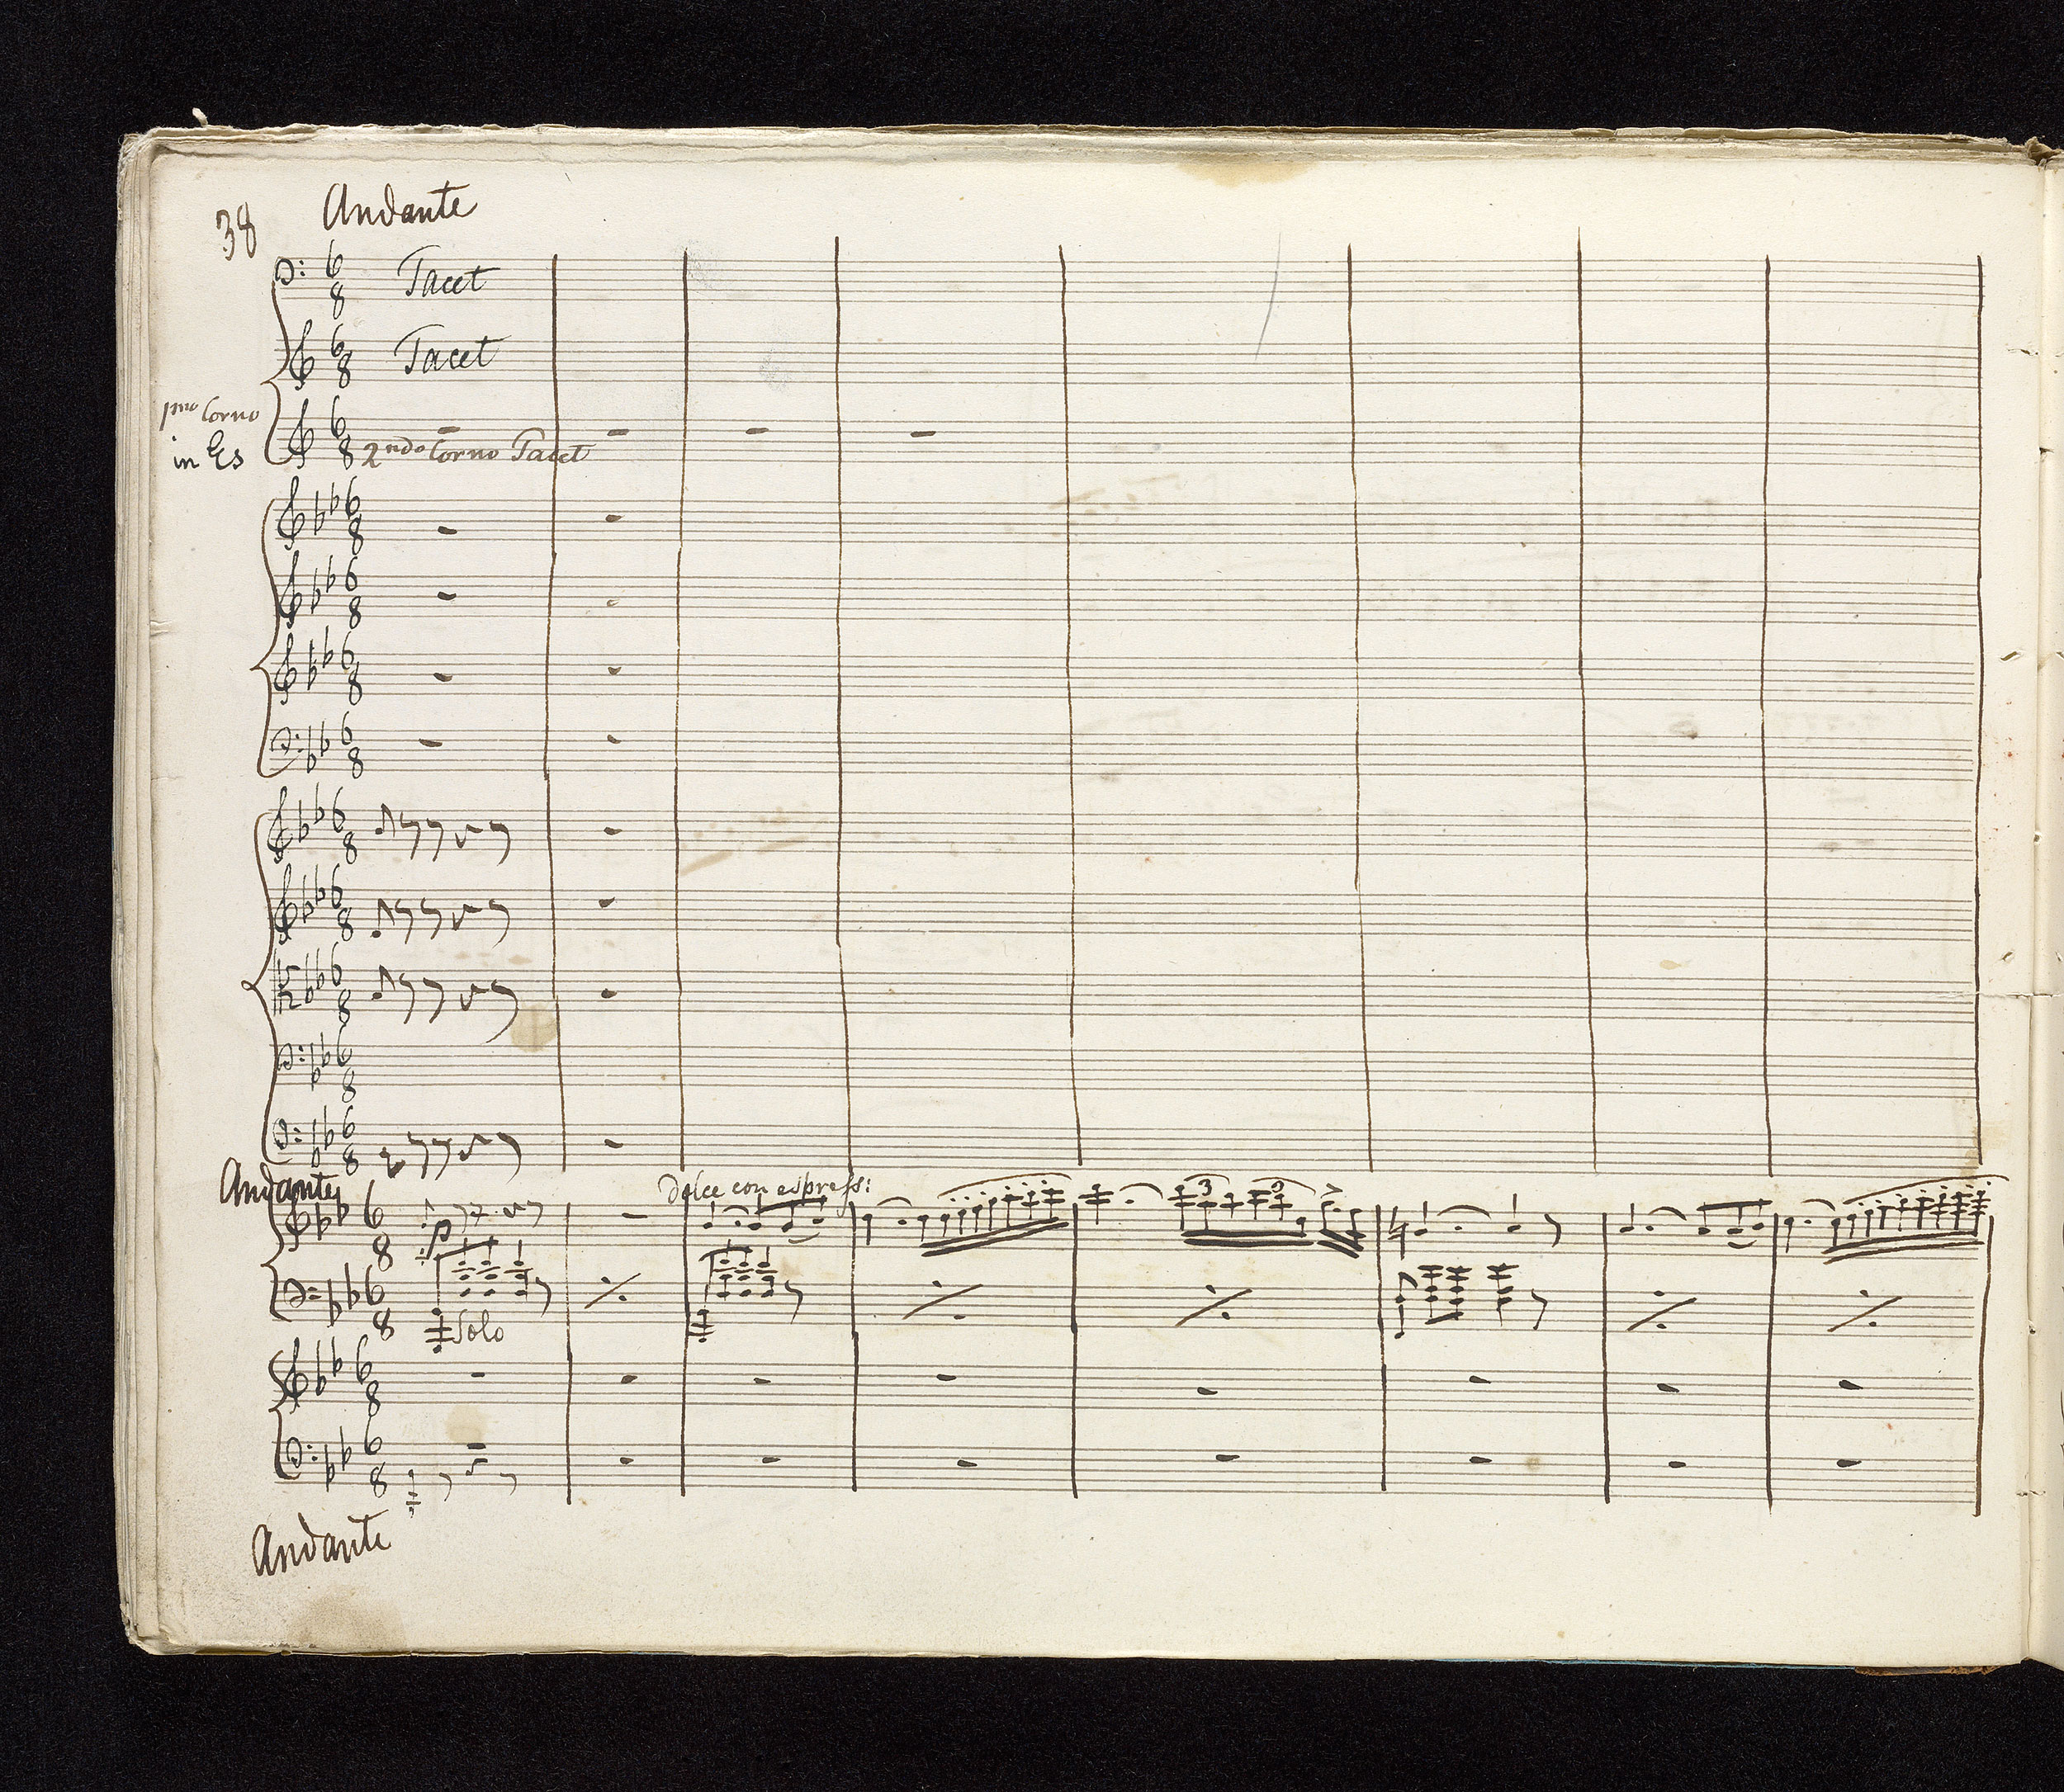 38
Andante
Tacet
Tacet
1mo Corno
in Es
2ndo Corno Tacet
Andante
Dolce con espress:
p
3
3
Solo
Andante